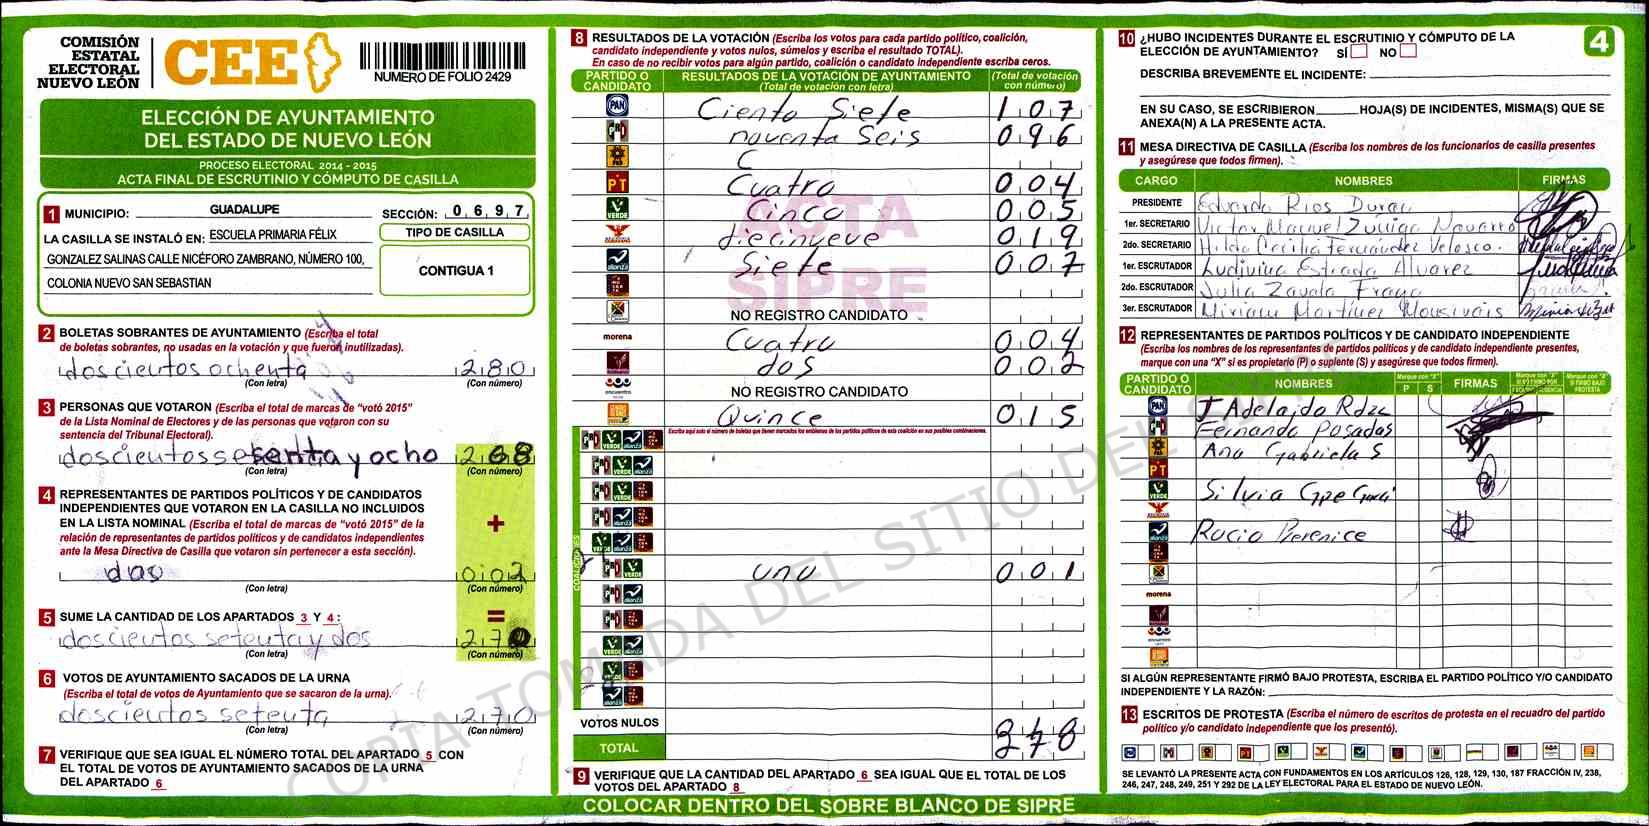 COMISIÓN
ESTATAL
ELECTORAL
NUEVO LEÓN
CEE
NUMERO DE FOLIO 2429
ELECCIÓN DE AYUNTAMIENTO
DEL ESTADO DE NUEVO LEÓN
PROCESO ELECTORAL 2014 - 2015
ACTA FINAL DE ESCRUTINIO Y CÓMPUTO DE CASILLA
1 MUNICIPIO: GUADALUPE SECCIÓN: 0 6 9 7
LA CASILLA SE INSTALÓ EN: ESCUELA PRIMARIA FÉLIX
GONZALEZ SALINAS CALLE NICÉFORO ZAMBRANO, NÚMERO 100,
COLONIA NUEVO SAN SEBASTIAN
TIPO DE CASILLA
CONTIGUA 1
2 BOLETAS SOBRANTES DE AYUNTAMIENTO (Escriba el total
de boletas sobrantes, no usadas en la votación y que fueron inutilizadas).
doscientos ochenta 280
(Con letra) (Con número)
3 PERSONAS QUE VOTARON (Escriba el total de marcas de “votó 2015”
de la Lista Nominal de Electores y de las personas que votaron con su
sentencia del Tribunal Electoral).
doscientos sesenta y ocho 268
(Con letra) (Con número)
4 REPRESENTANTES DE PARTIDOS POLÍTICOS Y DE CANDIDATOS
INDEPENDIENTES QUE VOTARON EN LA CASILLA NO INCLUIDOS
EN LA LISTA NOMINAL (Escriba el total de marcas de “votó 2015” de la
relación de representantes de partidos políticos y de candidatos independientes
ante la Mesa Directiva de Casilla que votaron sin pertenecer a esta sección).
+
dos 002
(Con letra) (Con número)
=
5 SUME LA CANTIDAD DE LOS APARTADOS 3 Y 4 :
doscientos setenta y dos 270
(Con letra) (Con número)
6 VOTOS DE AYUNTAMIENTO SACADOS DE LA URNA
(Escriba el total de votos de Ayuntamiento que se sacaron de la urna).
doscientos setenta 270
(Con letra) (Con número)
7 VERIFIQUE QUE SEA IGUAL EL NÚMERO TOTAL DEL APARTADO 5 CON
EL TOTAL DE VOTOS DE AYUNTAMIENTO SACADOS DE LA URNA
DEL APARTADO 6
8 RESULTADOS DE LA VOTACIÓN (Escriba los votos para cada partido político, coalición,
candidato independiente y votos nulos, súmelos y escriba el resultado TOTAL).
En caso de no recibir votos para algún partido, coalición o candidato independiente escriba ceros.
PARTIDO O CANDIDATO RESULTADOS DE LA VOTACIÓN DE AYUNTAMIENTO (Total de votación con letra) (Total de votación con número)
PAN Ciento Siete 107
noventa Seis 096
C
PT Cuatro 004
VERDE Cinco 005
diecinueve 019
alianza Siete 007
NO REGISTRO CANDIDATO
morena Cuatro 004
dos 002
NO REGISTRO CANDIDATO
Quince 015
Escriba aquí solo el número de boletas que tienen marcados los emblemas de los partidos políticos de esta coalición en sus posibles combinaciones.
COALICIONES
uno 001
VOTOS NULOS
TOTAL
9 VERIFIQUE QUE LA CANTIDAD DEL APARTADO 6 SEA IGUAL QUE EL TOTAL DE LOS
VOTOS DEL APARTADO 8
ACTA
SIPRE
COPIA TOMADA DEL SITIO DEL SIPRE
10 ¿HUBO INCIDENTES DURANTE EL ESCRUTINIO Y CÓMPUTO DE LA
ELECCIÓN DE AYUNTAMIENTO? SÍ NO
4
DESCRIBA BREVEMENTE EL INCIDENTE:
EN SU CASO, SE ESCRIBIERON HOJA(S) DE INCIDENTES, MISMA(S) QUE SE
ANEXA(N) A LA PRESENTE ACTA.
11 MESA DIRECTIVA DE CASILLA (Escriba los nombres de los funcionarios de casilla presentes
y asegúrese que todos firmen).
CARGO NOMBRES FIRMAS
PRESIDENTE Eduardo Rios Duran
1er. SECRETARIO Victor Manuel Zuñiga Navarro
2do. SECRETARIO Hilda Cecilia Fernández Velasco.
1er. ESCRUTADOR Ludivina Estrada Alvarez
2do. ESCRUTADOR Julia Zavala Fraga
3er. ESCRUTADOR Miriam Martínez Monsivais
12 REPRESENTANTES DE PARTIDOS POLÍTICOS Y DE CANDIDATO INDEPENDIENTE
(Escriba los nombres de los representantes de partidos políticos y de candidato independiente presentes,
marque con una “X” si es propietario (P) o suplente (S) y asegúrese que todos firmen).
PARTIDO O CANDIDATO NOMBRES Marque con "X" P S FIRMAS
PAN J Adelaido Rdzz
Fernando Posadas
Ana Gabriela S
PT
VERDE Silvia Gpe
Rocio Berenice
morena
SI ALGÚN REPRESENTANTE FIRMÓ BAJO PROTESTA, ESCRIBA EL PARTIDO POLÍTICO Y/O CANDIDATO
INDEPENDIENTE Y LA RAZÓN:
13 ESCRITOS DE PROTESTA (Escriba el número de escritos de protesta en el recuadro del partido
político y/o candidato independiente que los presentó).
SE LEVANTÓ LA PRESENTE ACTA CON FUNDAMENTOS EN LOS ARTÍCULOS 126, 128, 129, 130, 187 FRACCIÓN IV, 238,
246, 247, 248, 249, 251 Y 292 DE LA LEY ELECTORAL PARA EL ESTADO DE NUEVO LEÓN.
COLOCAR DENTRO DEL SOBRE BLANCO DE SIPRE